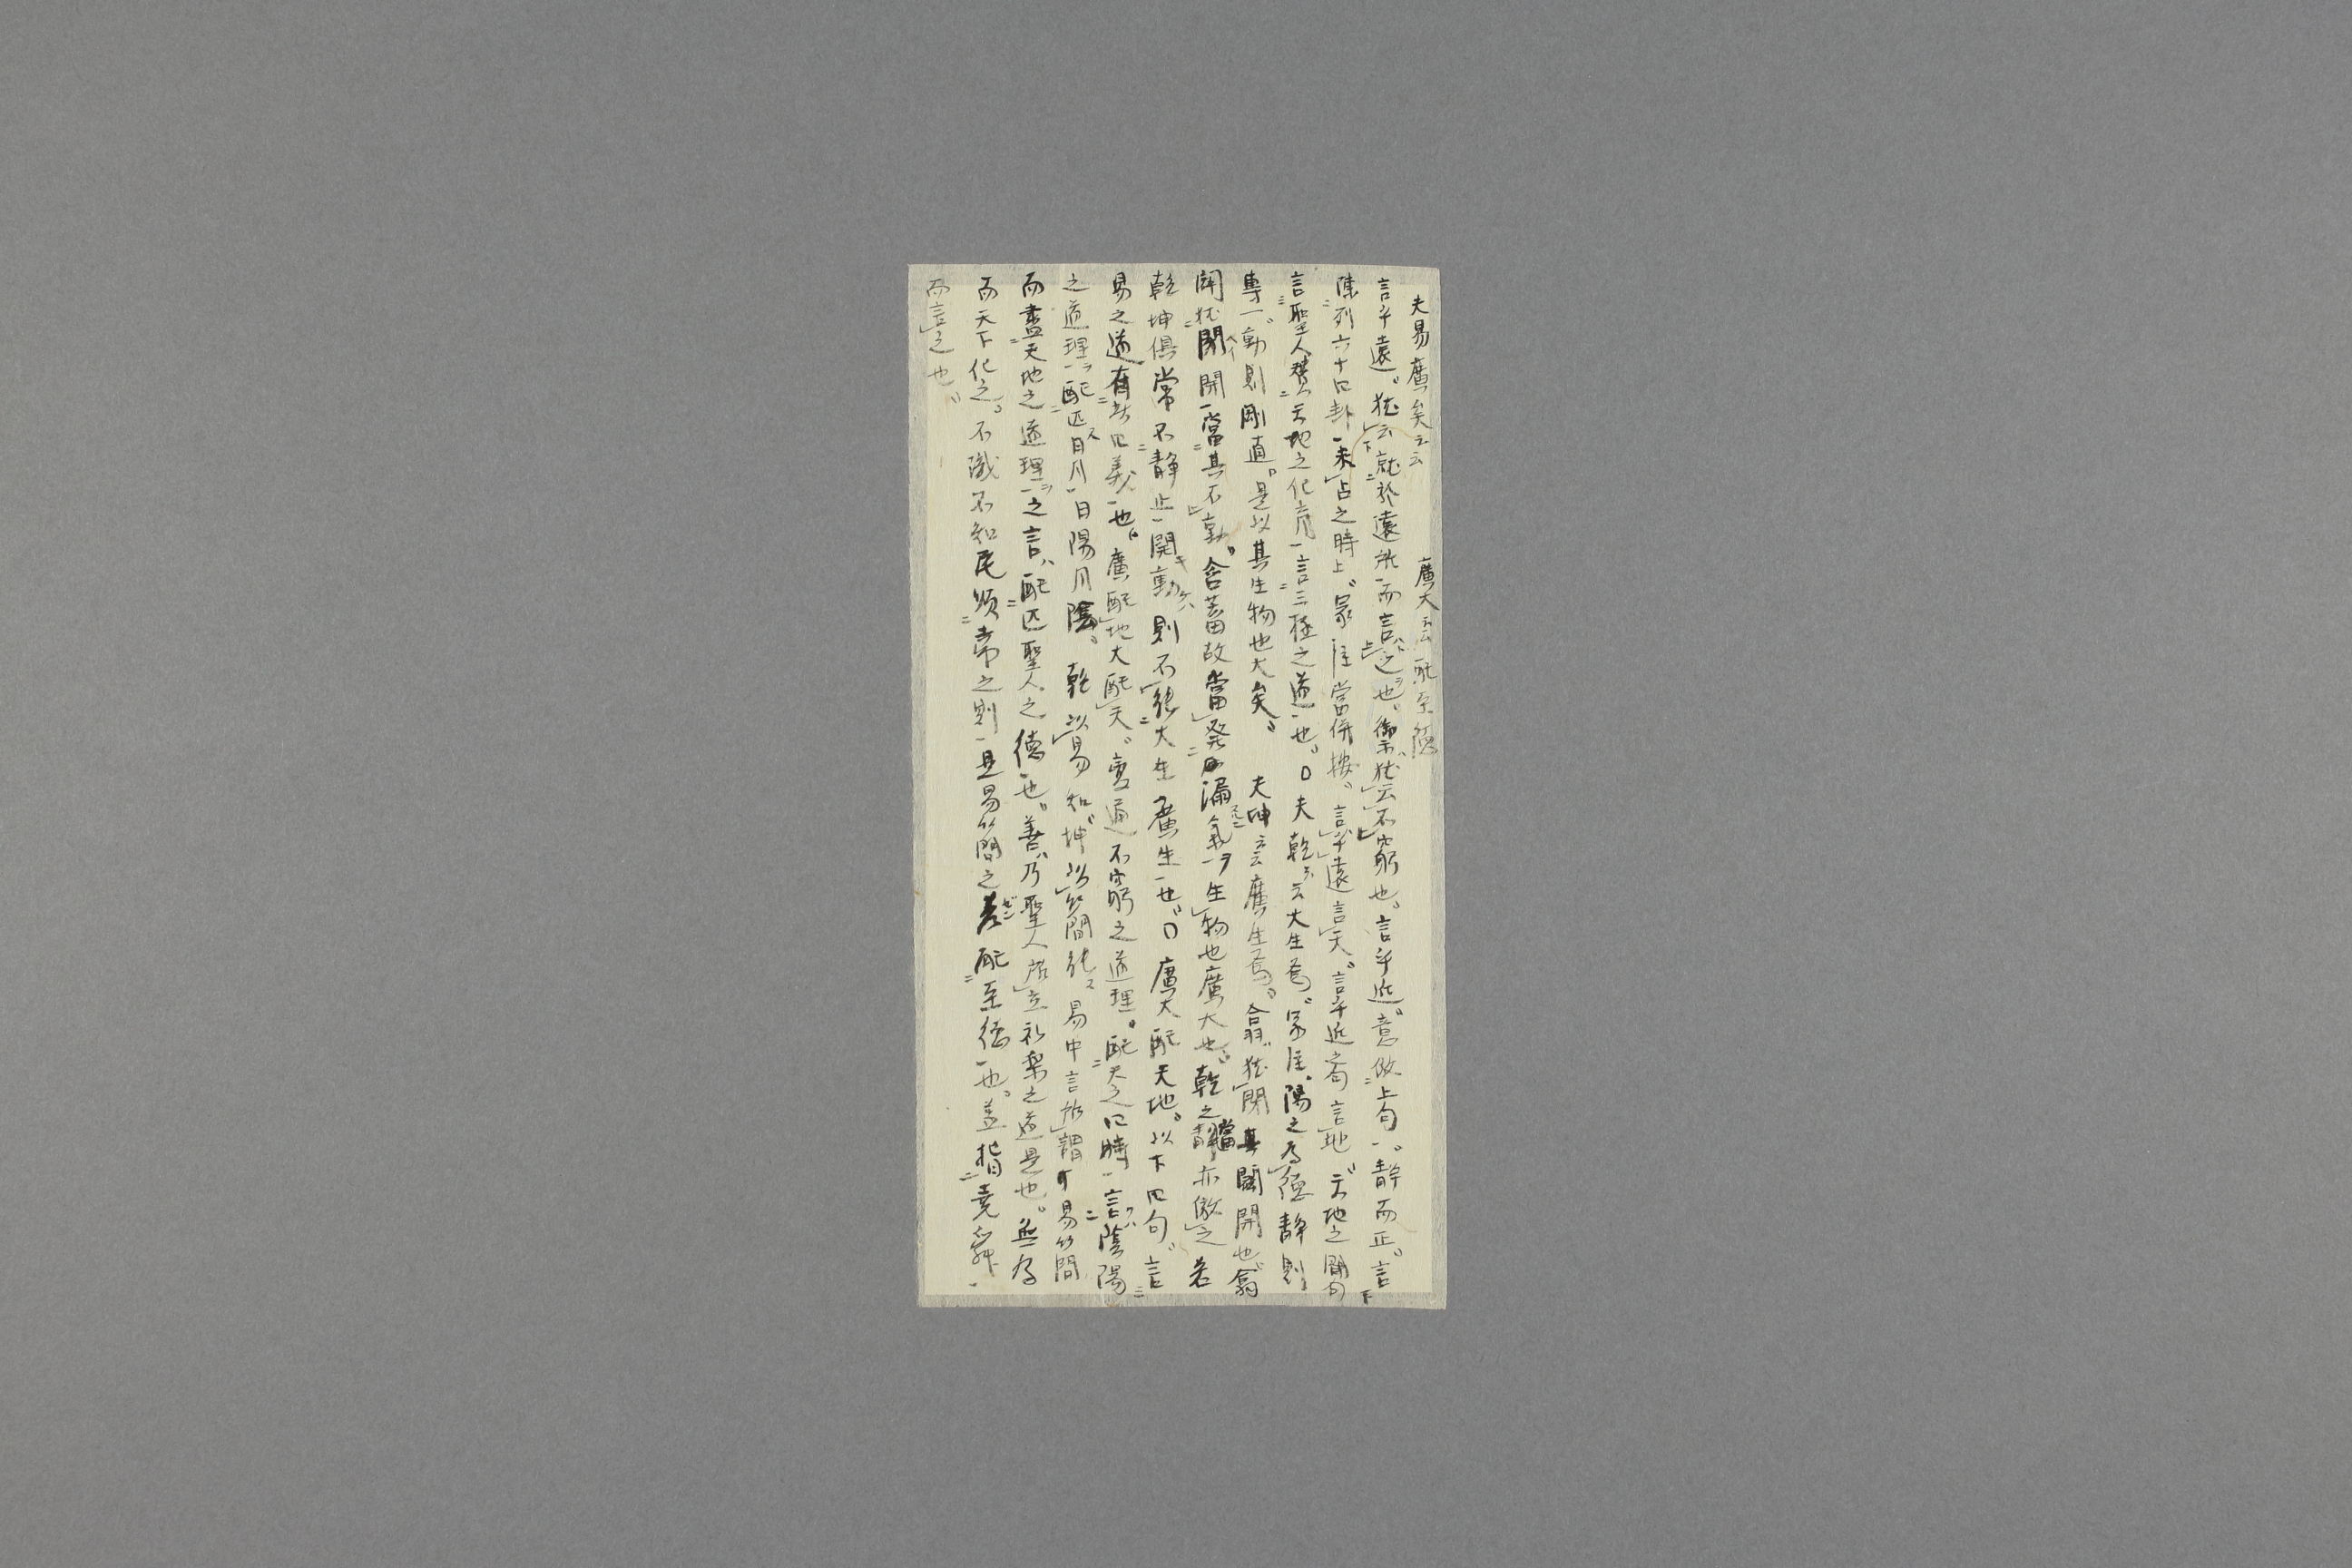 夫易廣矣云云 廣大云云配至德
言乎遠。猶云就於遠所而言之也。禦猶云不窮也。言乎近。意倣上句。靜而正。言
陳列六十四卦未占之時上。象注當併按。言乎遠言天。言乎近之句言地。天地之間句
言聖人贊天地之化育言三極之道也。〇夫乾云云大生焉。象注。陽之為德靜則
專一。動則剛直。是以其生物也大矣。夫坤云云廣生焉。翕猶閉其闢開也。翕
闢猶閉開當其不動。含蓄故當発漏氣ヲ生物也廣大也。乾之靜亦倣之若
乾坤俱常不靜止開動則不能大生廣生也。〇廣大配天地。以下四句。言
易之道有此四義也。廣配地大配天。變通不窮之道理。配天之四時言陰陽
之道理配匹日月日陽月陰。乾以易知。坤以簡能。易中言所謂易簡
而盡天地之道理之言配匹聖人之德也。善乃聖人所立礼樂之道是也。無為
而天下化之。不識不知順帝之則是易簡之善配至德也。蓋指堯舜
而言之也。